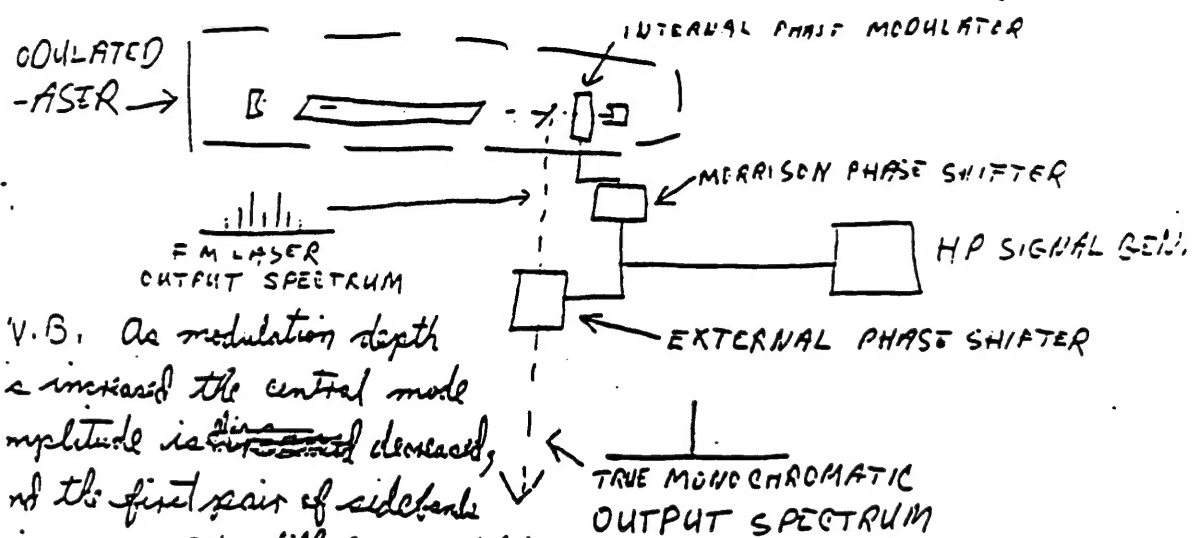 INTERNAL PHASE MODULATOR
ODULATED
-ASER
MORRISON PHASE SHIFTER
HP SIGNAL GEN.
FM LASER
OUTPUT SPECTRUM
EXTERNAL PHASE SHIFTER
V.B. As modulation depth
is increased the central mode
mplitude is decreased,
nd the first pair of sidebands
TRUE MONOCHROMATIC
OUTPUT SPECTRUM